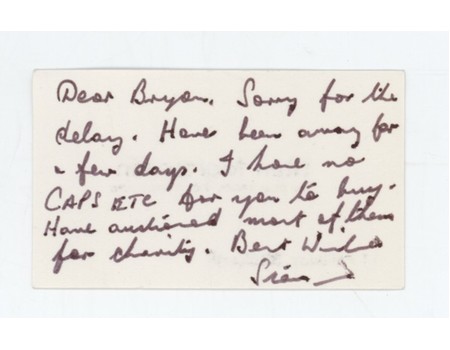 Dear Bryan. Sorry for the
delay. Have been away for
a few days. I have no
CAPS ETC for you to buy.
Have auctioned most of them
for charity. Best Wishes